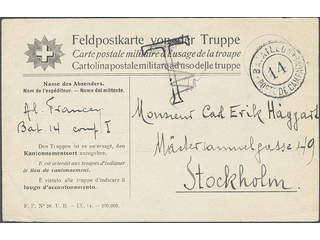 Feldpostkarte von der Truppe
Carte postale militaire à l'usage de la troupe
Cartolina postale militare ad uso delle truppe
T
14
POSTE DE CAMPAGNE
Name des Absenders.
Nom de l'expéditeur. — Nome del militente.
Al. Francey
Bat. 14 comp I
Monsieur Carl Erik Häggart
Mästersamuelsgase 49
Stockholm.
Den Truppen ist es untersagt, den
Kantonnementsort anzugeben.
Il est interdit aux troupes d'indiquer
le lieu de cantonnement.
È vietato alle truppe d'indicare il
luogo d'accantonamento.
F. P. Nº 26. U. B. — IX. 14. — 200,000.